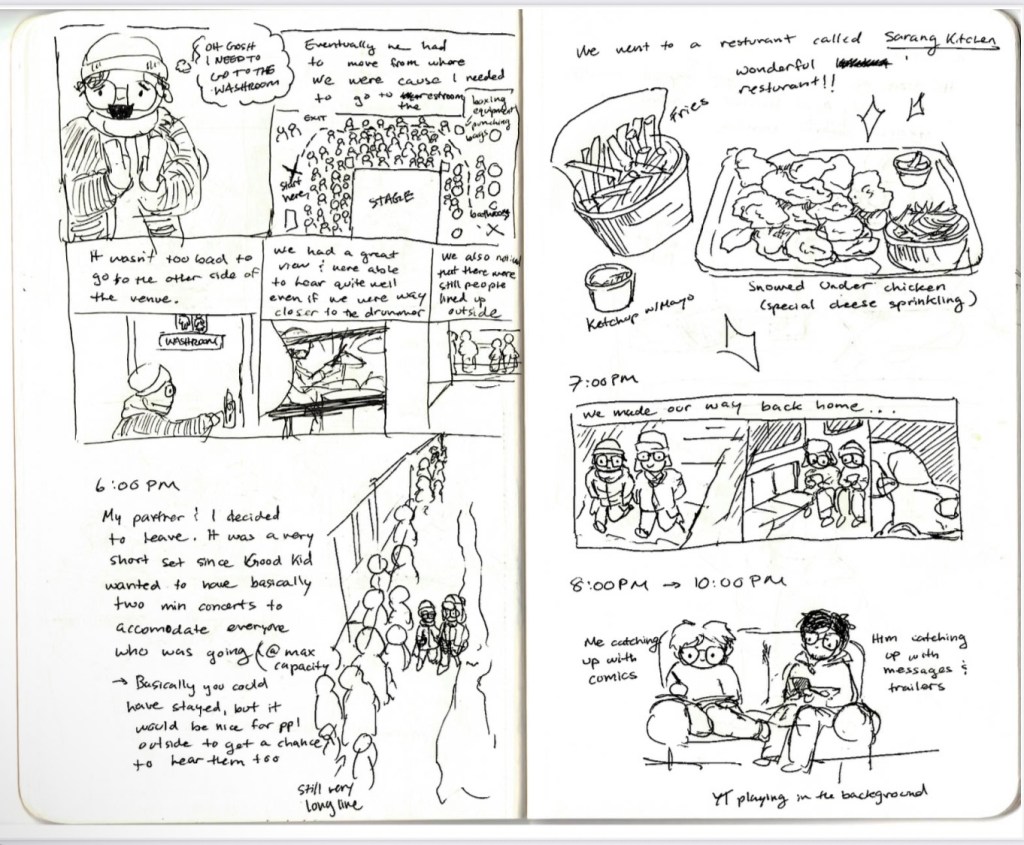 OH GOSH
I NEED TO
GO TO THE
WASHROOM
Eventually we had
to move from where
we were cause I needed
to go to the restroom
EXIT
boxing
equipment
punching
bags
start
here
STAGE
bathroom
It wasn't too bad to
go to the other side of
the venue.
WASHROOM
We had a great
view & were able
to hear quite well
even if we were way
closer to the drummer
We also noticed
that there were
still people
lined up
outside
6:00 PM
My partner & I decided
to leave. It was a very
short set since Good Kid
wanted to have basically
two min concerts to
accomodate everyone
who was going (@ max
capacity)
→ Basically you could
have stayed, but it
would be nice for ppl
outside to get a chance
to hear them too
still very
long line
We went to a resturant called Sarang Kitchen
wonderful
resturant!!
fries
Ketchup w/Mayo
Snowed Under chicken
(special cheese sprinkling)
7:00 PM
We made our way back home...
8:00 PM → 10:00 PM
Me catching
up with
comics
Him catching
up with
messages &
trailers
YT playing in the background